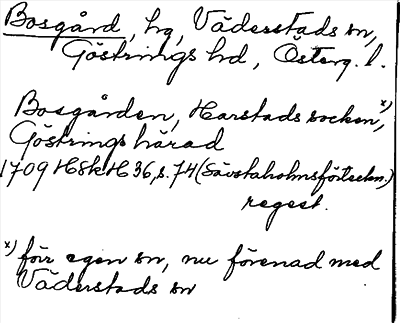 Bosgård, hg, Väderstads sn,
Göstrings hd, Österg. l.
Bosgården, Harstads socken x),
Göstrings härad
1709 HSkH 36, s. 74 (Sävstaholmsförteckn.)
regest.
x) förr egen sn, nu förenad med
Väderstads sn